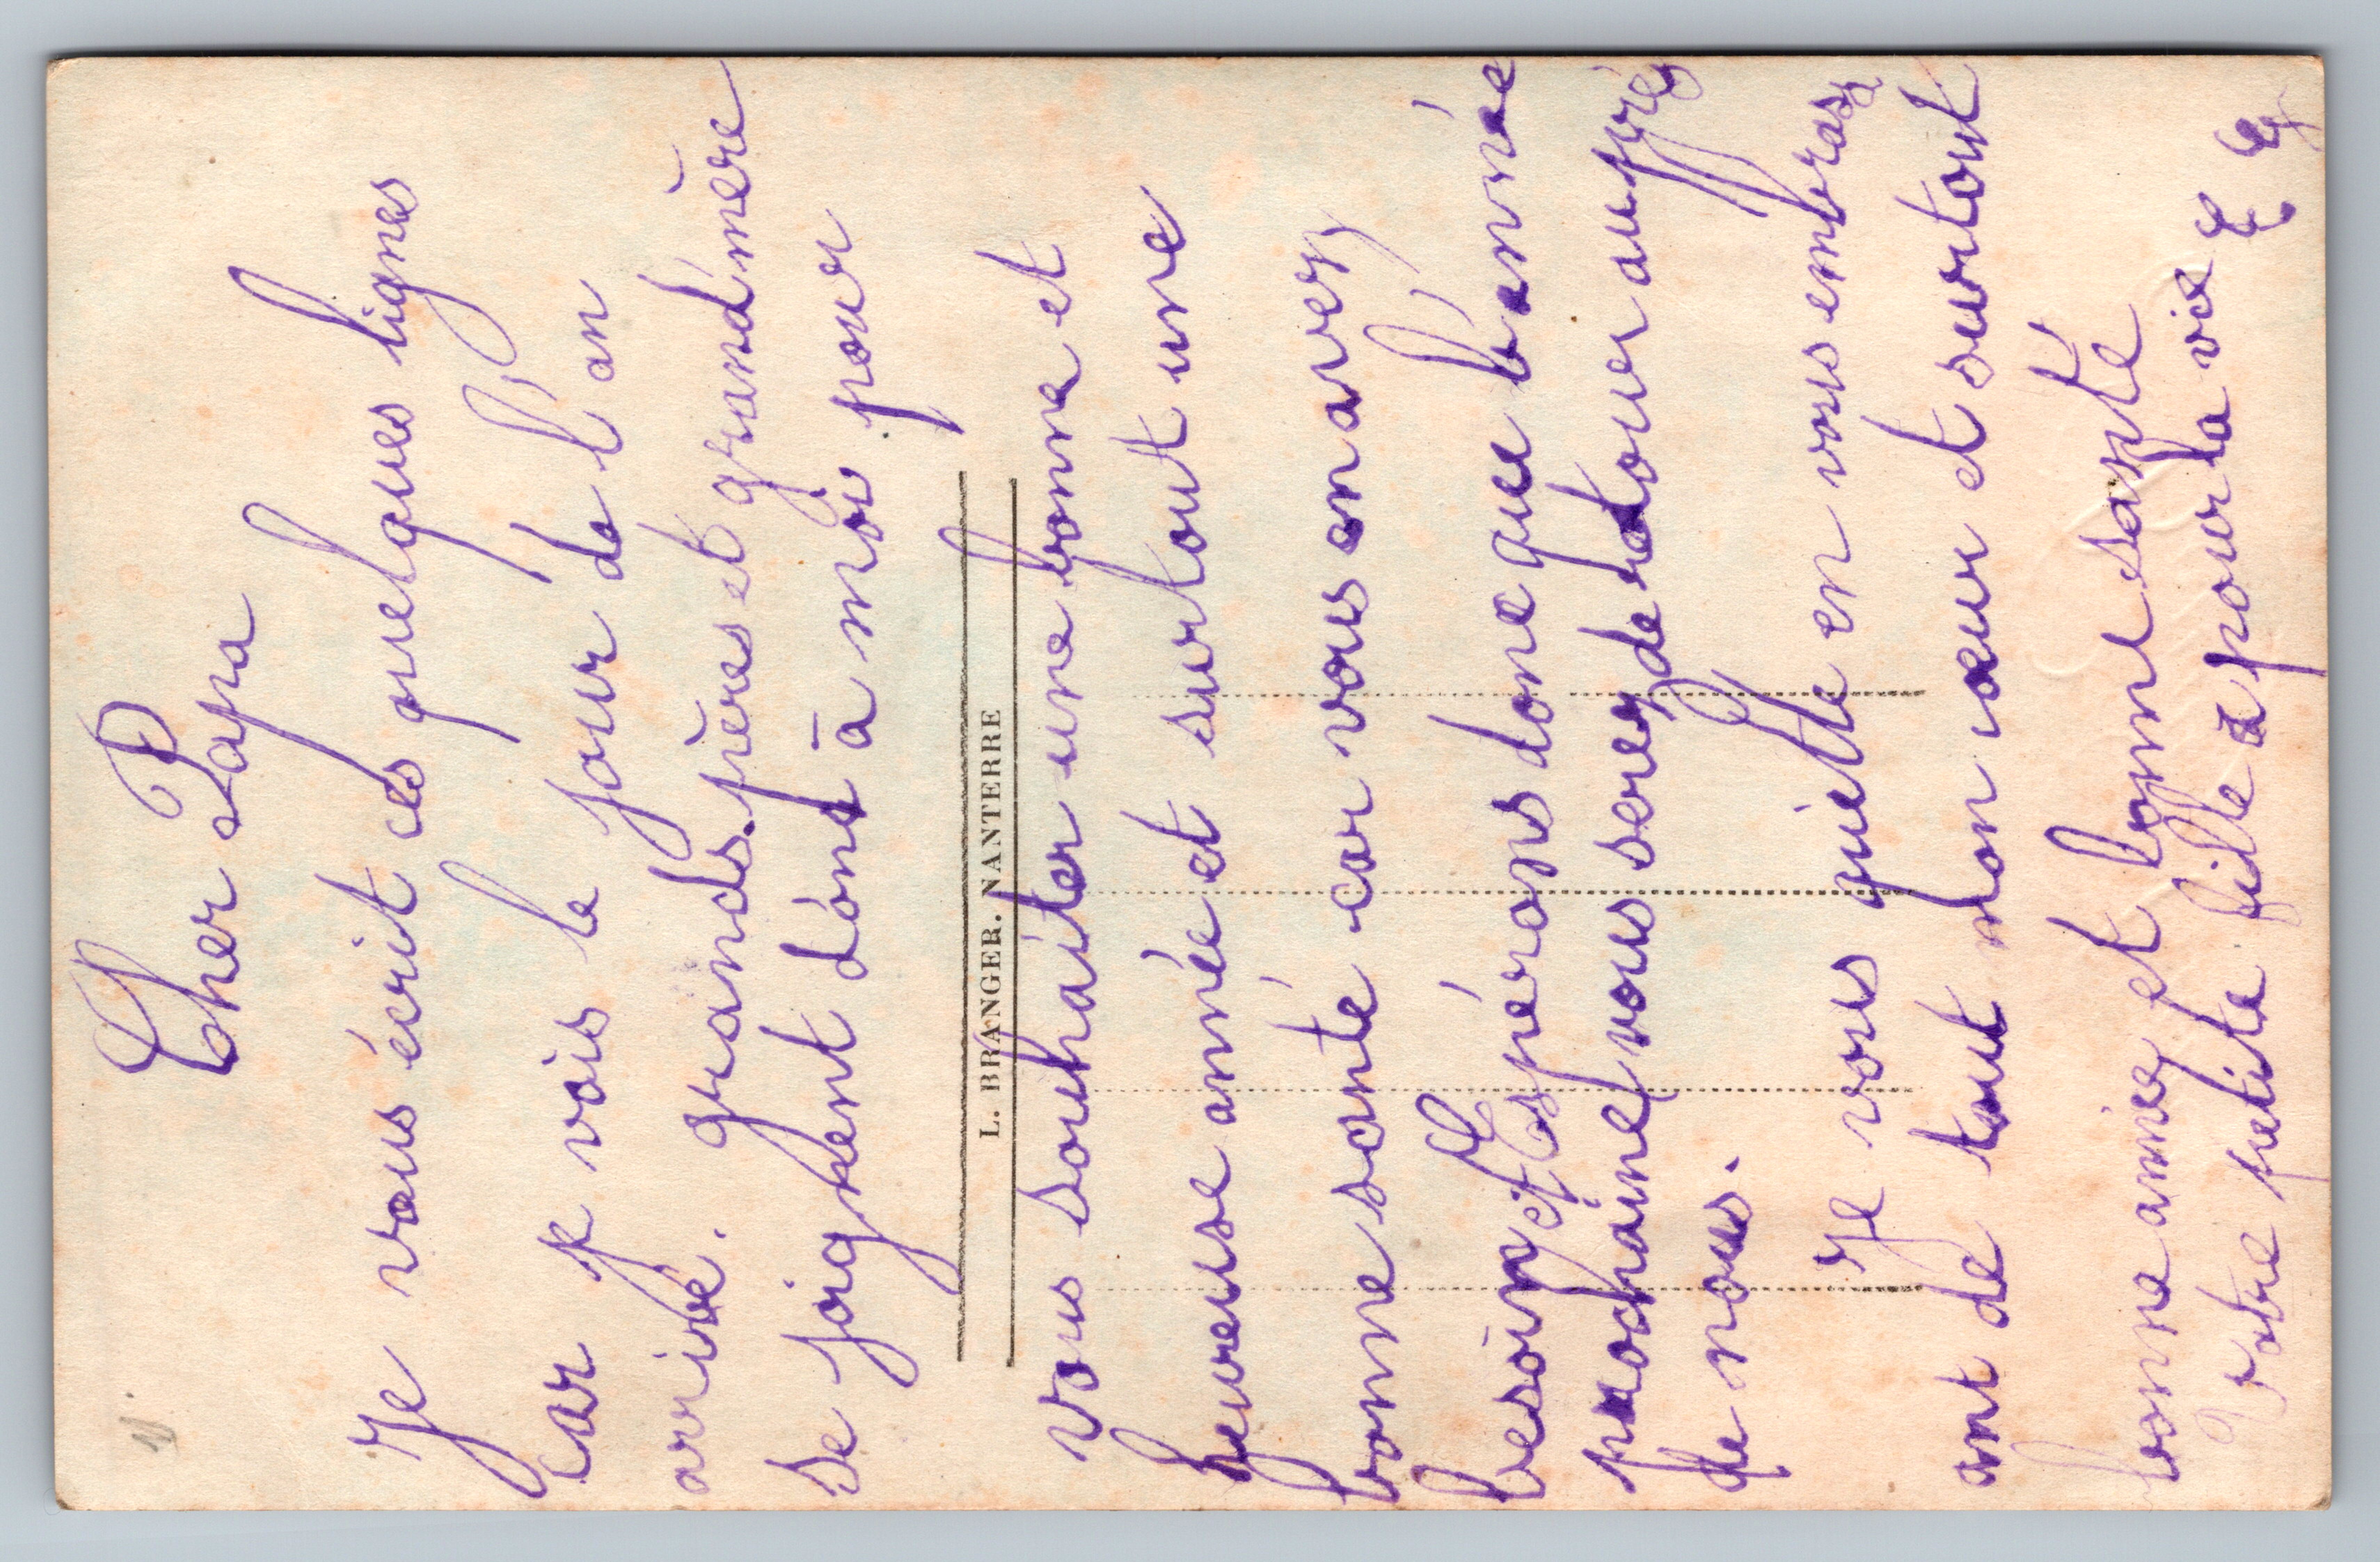 Cher Papa
Je vous écrit ces quelques lignes
car je vois le jour de l'an
arrivé. grands.pères et grand'mère
se joignent donc à moi pour
L. BRANGER. NANTERRE
vous souhaiter une bonne et
heureuse année et surtout une
bonne santé car vous en avez
besoin et Espérons donc que l'année
prochaine vous serez de retour au près
de nous.
Je vous quitte en vous embrass
ant de tout mon cœur et surtout
bonne année et bonne santé
Votre petite fille à pour la vie E G